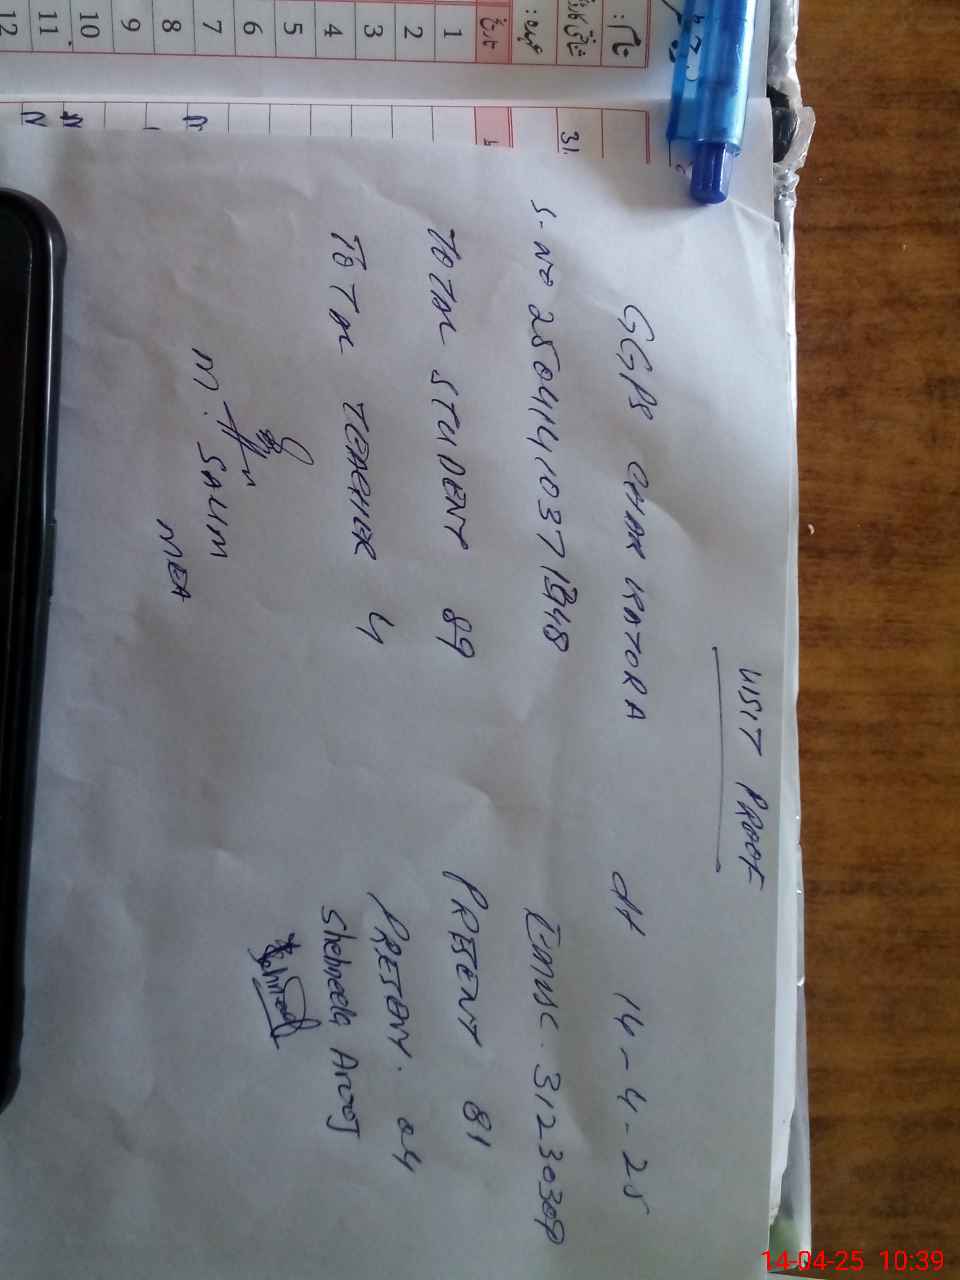 VISIT PROOF
GGPS CHAK KATORA dt 14-4-25
S-NO Emis. 31230309
TOTAL STUDENT 89 PRESENT 81
TOTAL TEACHER 4 PRESENT. 04
Shehneela Arooj
M. SALIM
MEA
31.
تاریخ
1
2
3
4
5
6
7
8
9
10
11
12
14-04-25 10:39